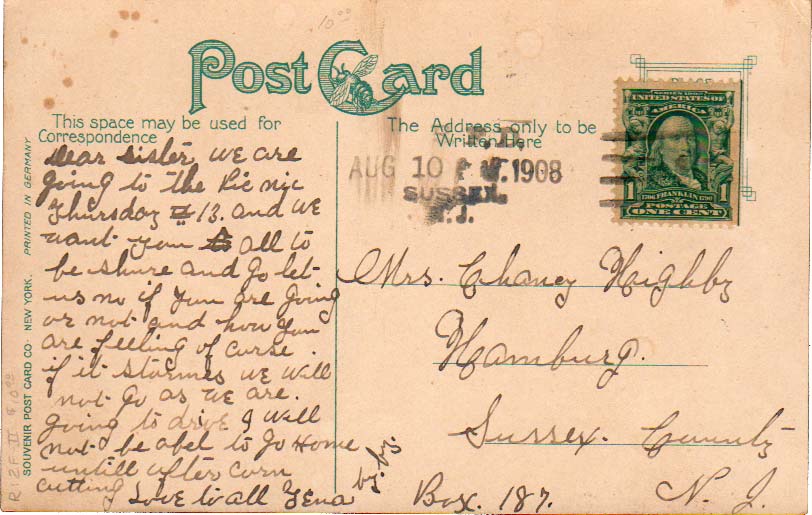 10.00
Post Card
This space may be used for
Correspondence
The Address only to be
Written Here
PLACE
AUG 10 1908
SUSSEX.
N.J.
SERIES 1902
UNITED STATES OF
AMERICA
1
1706 FRANKLIN 1790
1
POSTAGE
ONE CENT
Dear Sister, we are
going to the Pic nic
Thursday 13. and we
want you all to
be shure and go let
us no if you are going
or not and how you
are feeling of curse.
if it stormes we will
not go as we are.
going to drive I will
not be abel to go home
untill after corn
cutting Love to all Lena
by, by.
Mrs. Chancy Highby
Hamburg.
Sussex. County
Box. 187. N. J.
SOUVENIR POST CARD CO. NEW YORK. PRINTED IN GERMANY
R12F-II $10.00